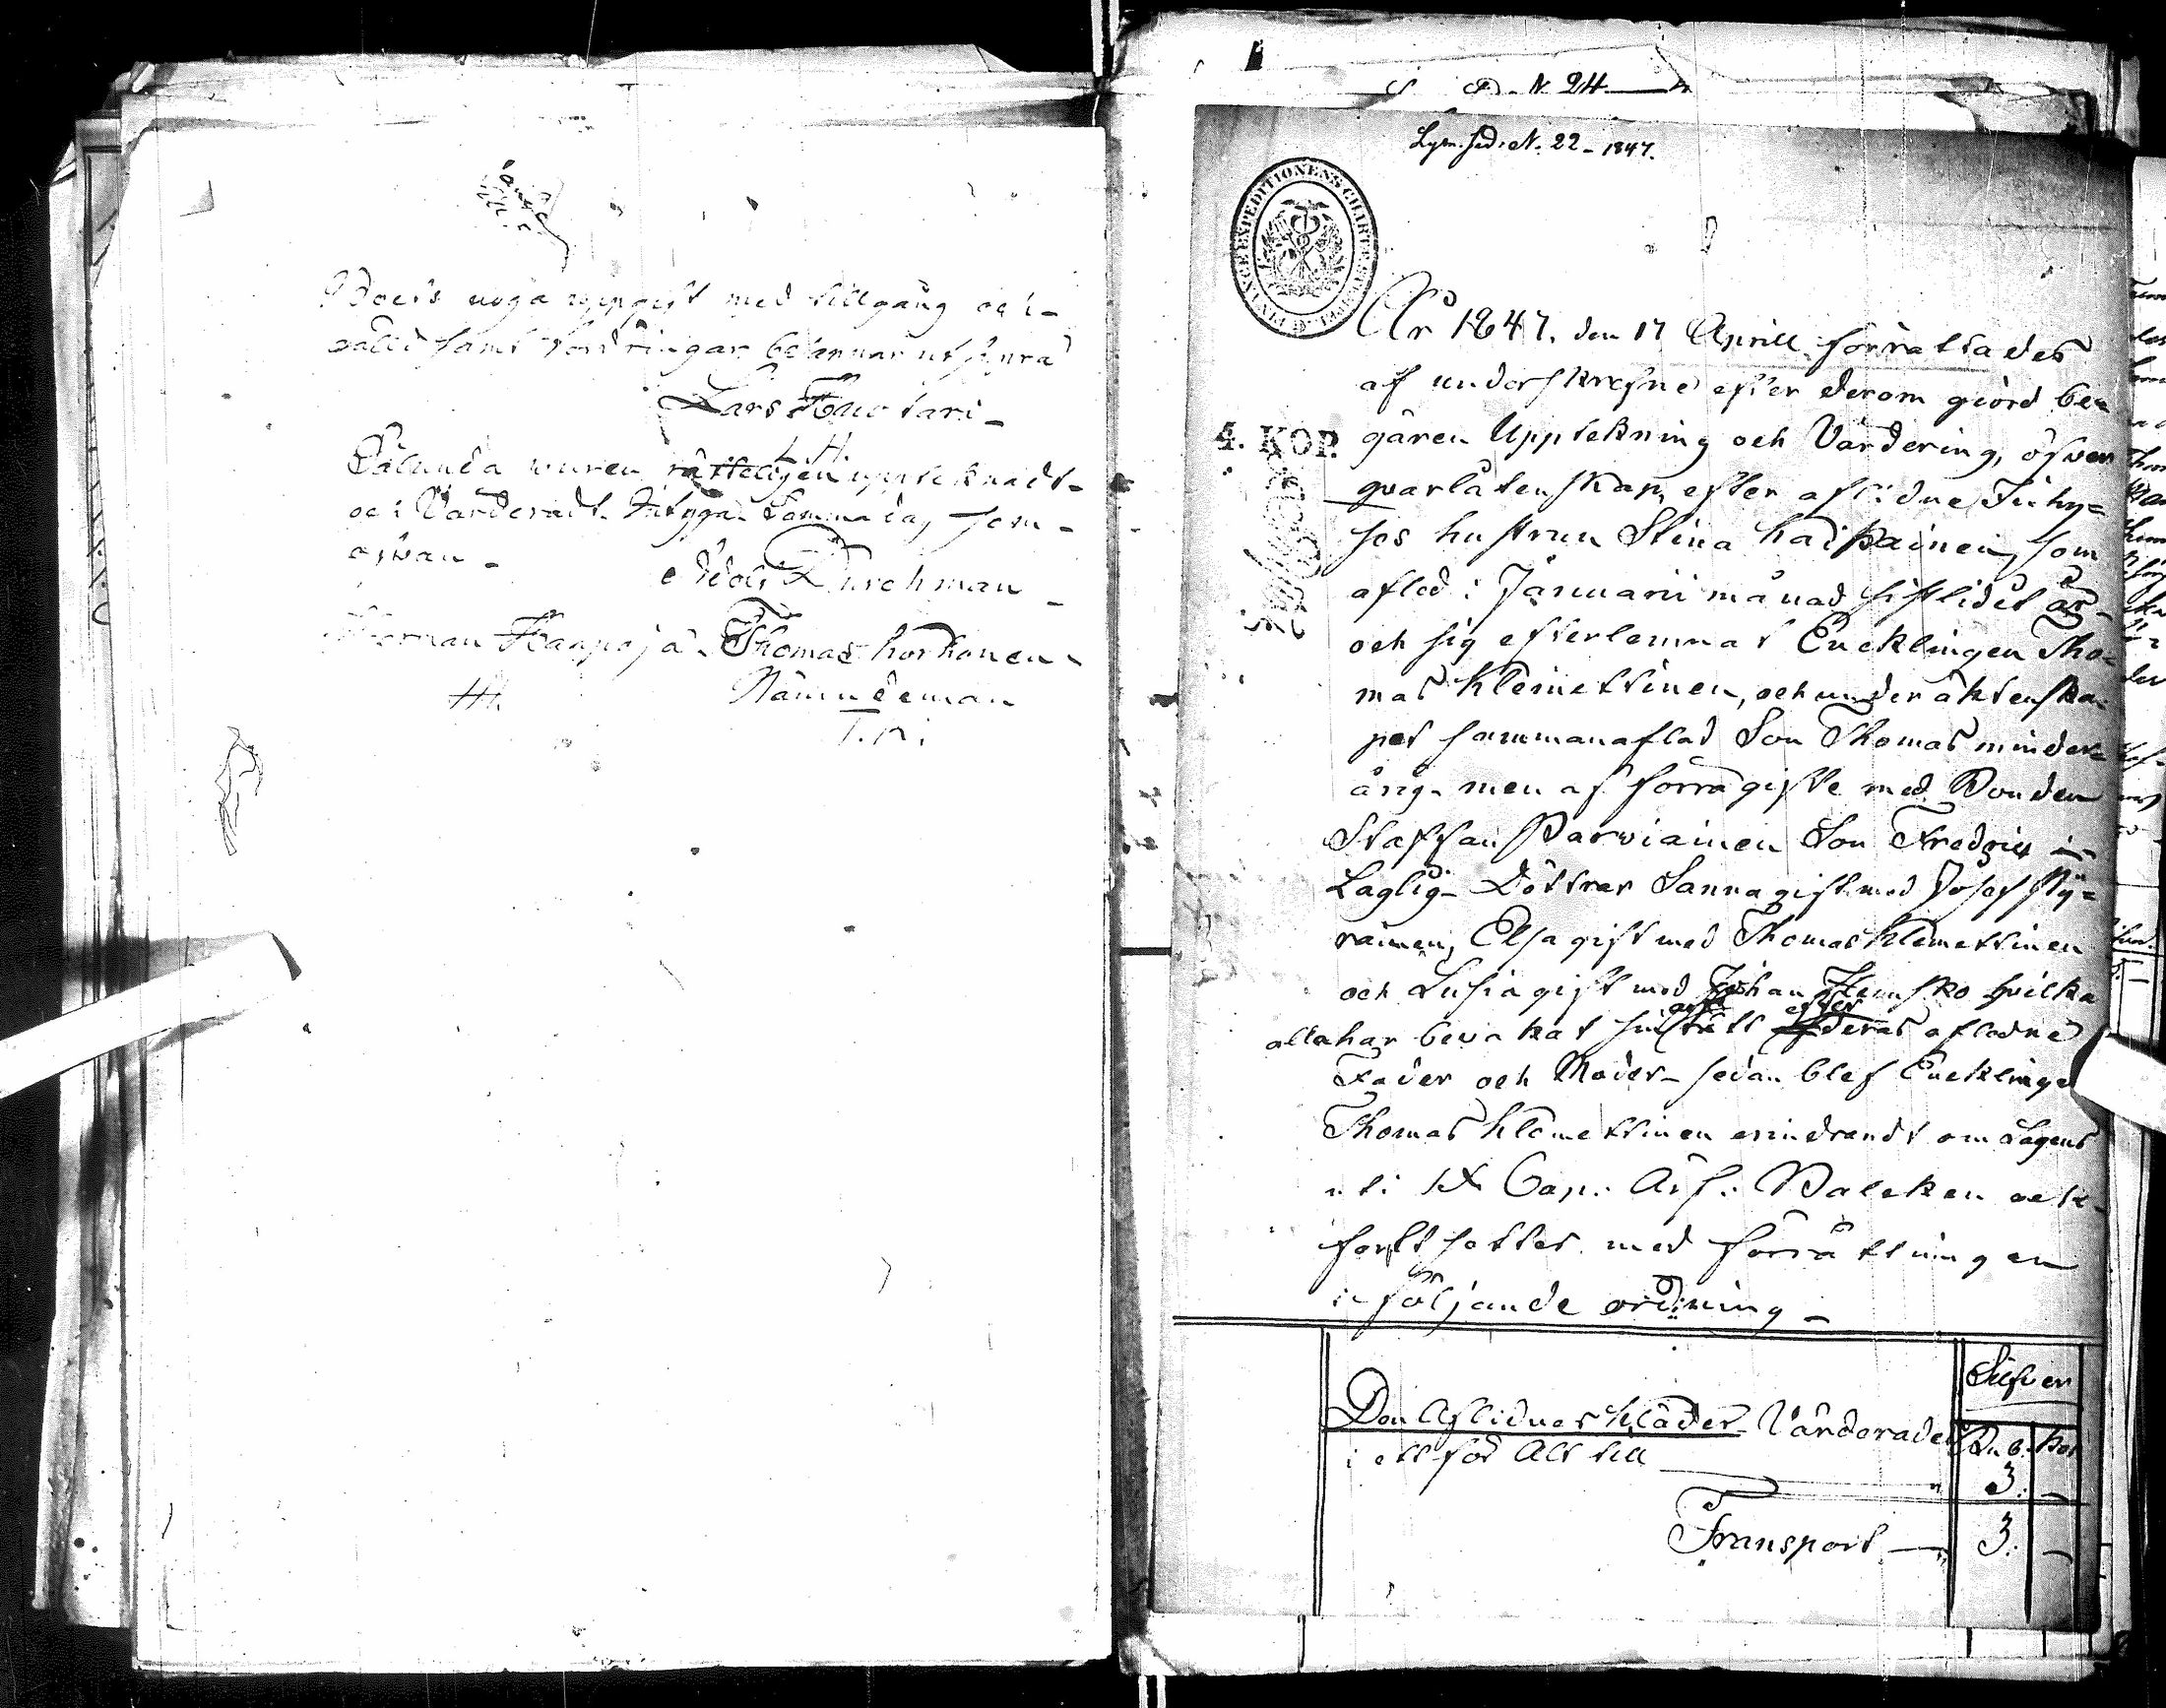 Boets noga uppgift med tillgång och
gäld samt fordringar bekännar utfära
Lars Kuotari
L. H.
Sålunda wuren rätteligen upptecknadt
och Värderadt. Intyga. Samma dag som
ofvan
Herman Haapoja. Thomas Korhonen
Nämndeman
T. K.
N. 24
N. 22 - 1847.
FINL. CHARTÆ SIGILL.
År 1847. den 17 Aprill förrättades
af underskrefne efter derom giord be-
4. KOP.
gären Upptekning och Värdering, öfwer
qvarlåtenskap, efter aflidne Inhy=
ses hustrun Stina Kaipainen, som
afled i Januarii månad sistlidet år
och sig efterlemnat Encklingen Tho=
mas Klemettinen, och under äktenska-
pet sammanaflad Son Thomas minder-
årig. men af förra gifte med Bonden
Staffan Parviainen Son Fredric
Laglig. Döttrar Sanna gift med Josef Ry=
räinen, Elsa gift med Thomas Klemettinen
och Lusia gift med Johan hvilka
alla har bevakat sin arfs rätt efter deras afledne
Fader och Moder - sedan blef Encklingen
Thomas Klemettinen erindrandt om Lagens
uti IX Cap. Arf. Balcken och
fortt sattes med förrättningen
i följande ordning
Silfver
Den Aflidnes Kläder Värderades
Rub. Kop
i ett för Allt till
3. —
Transport — 3. —